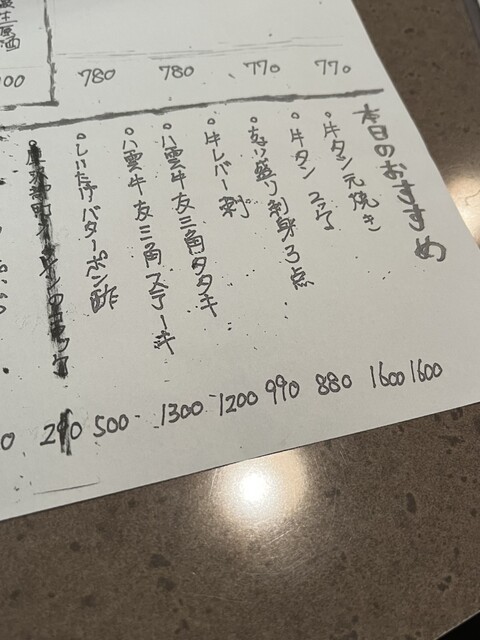 770
770
780
780
00
生原酒
本日のおすすめ
○牛タン元焼き 1600
○牛タン 1600
盛り刺身3点 880
○牛レバー刺 990
○八雲牛友三角タタキ 1200
○八雲牛友三角ステーキ 1300
○しいたけバターポン酢 500
290
0